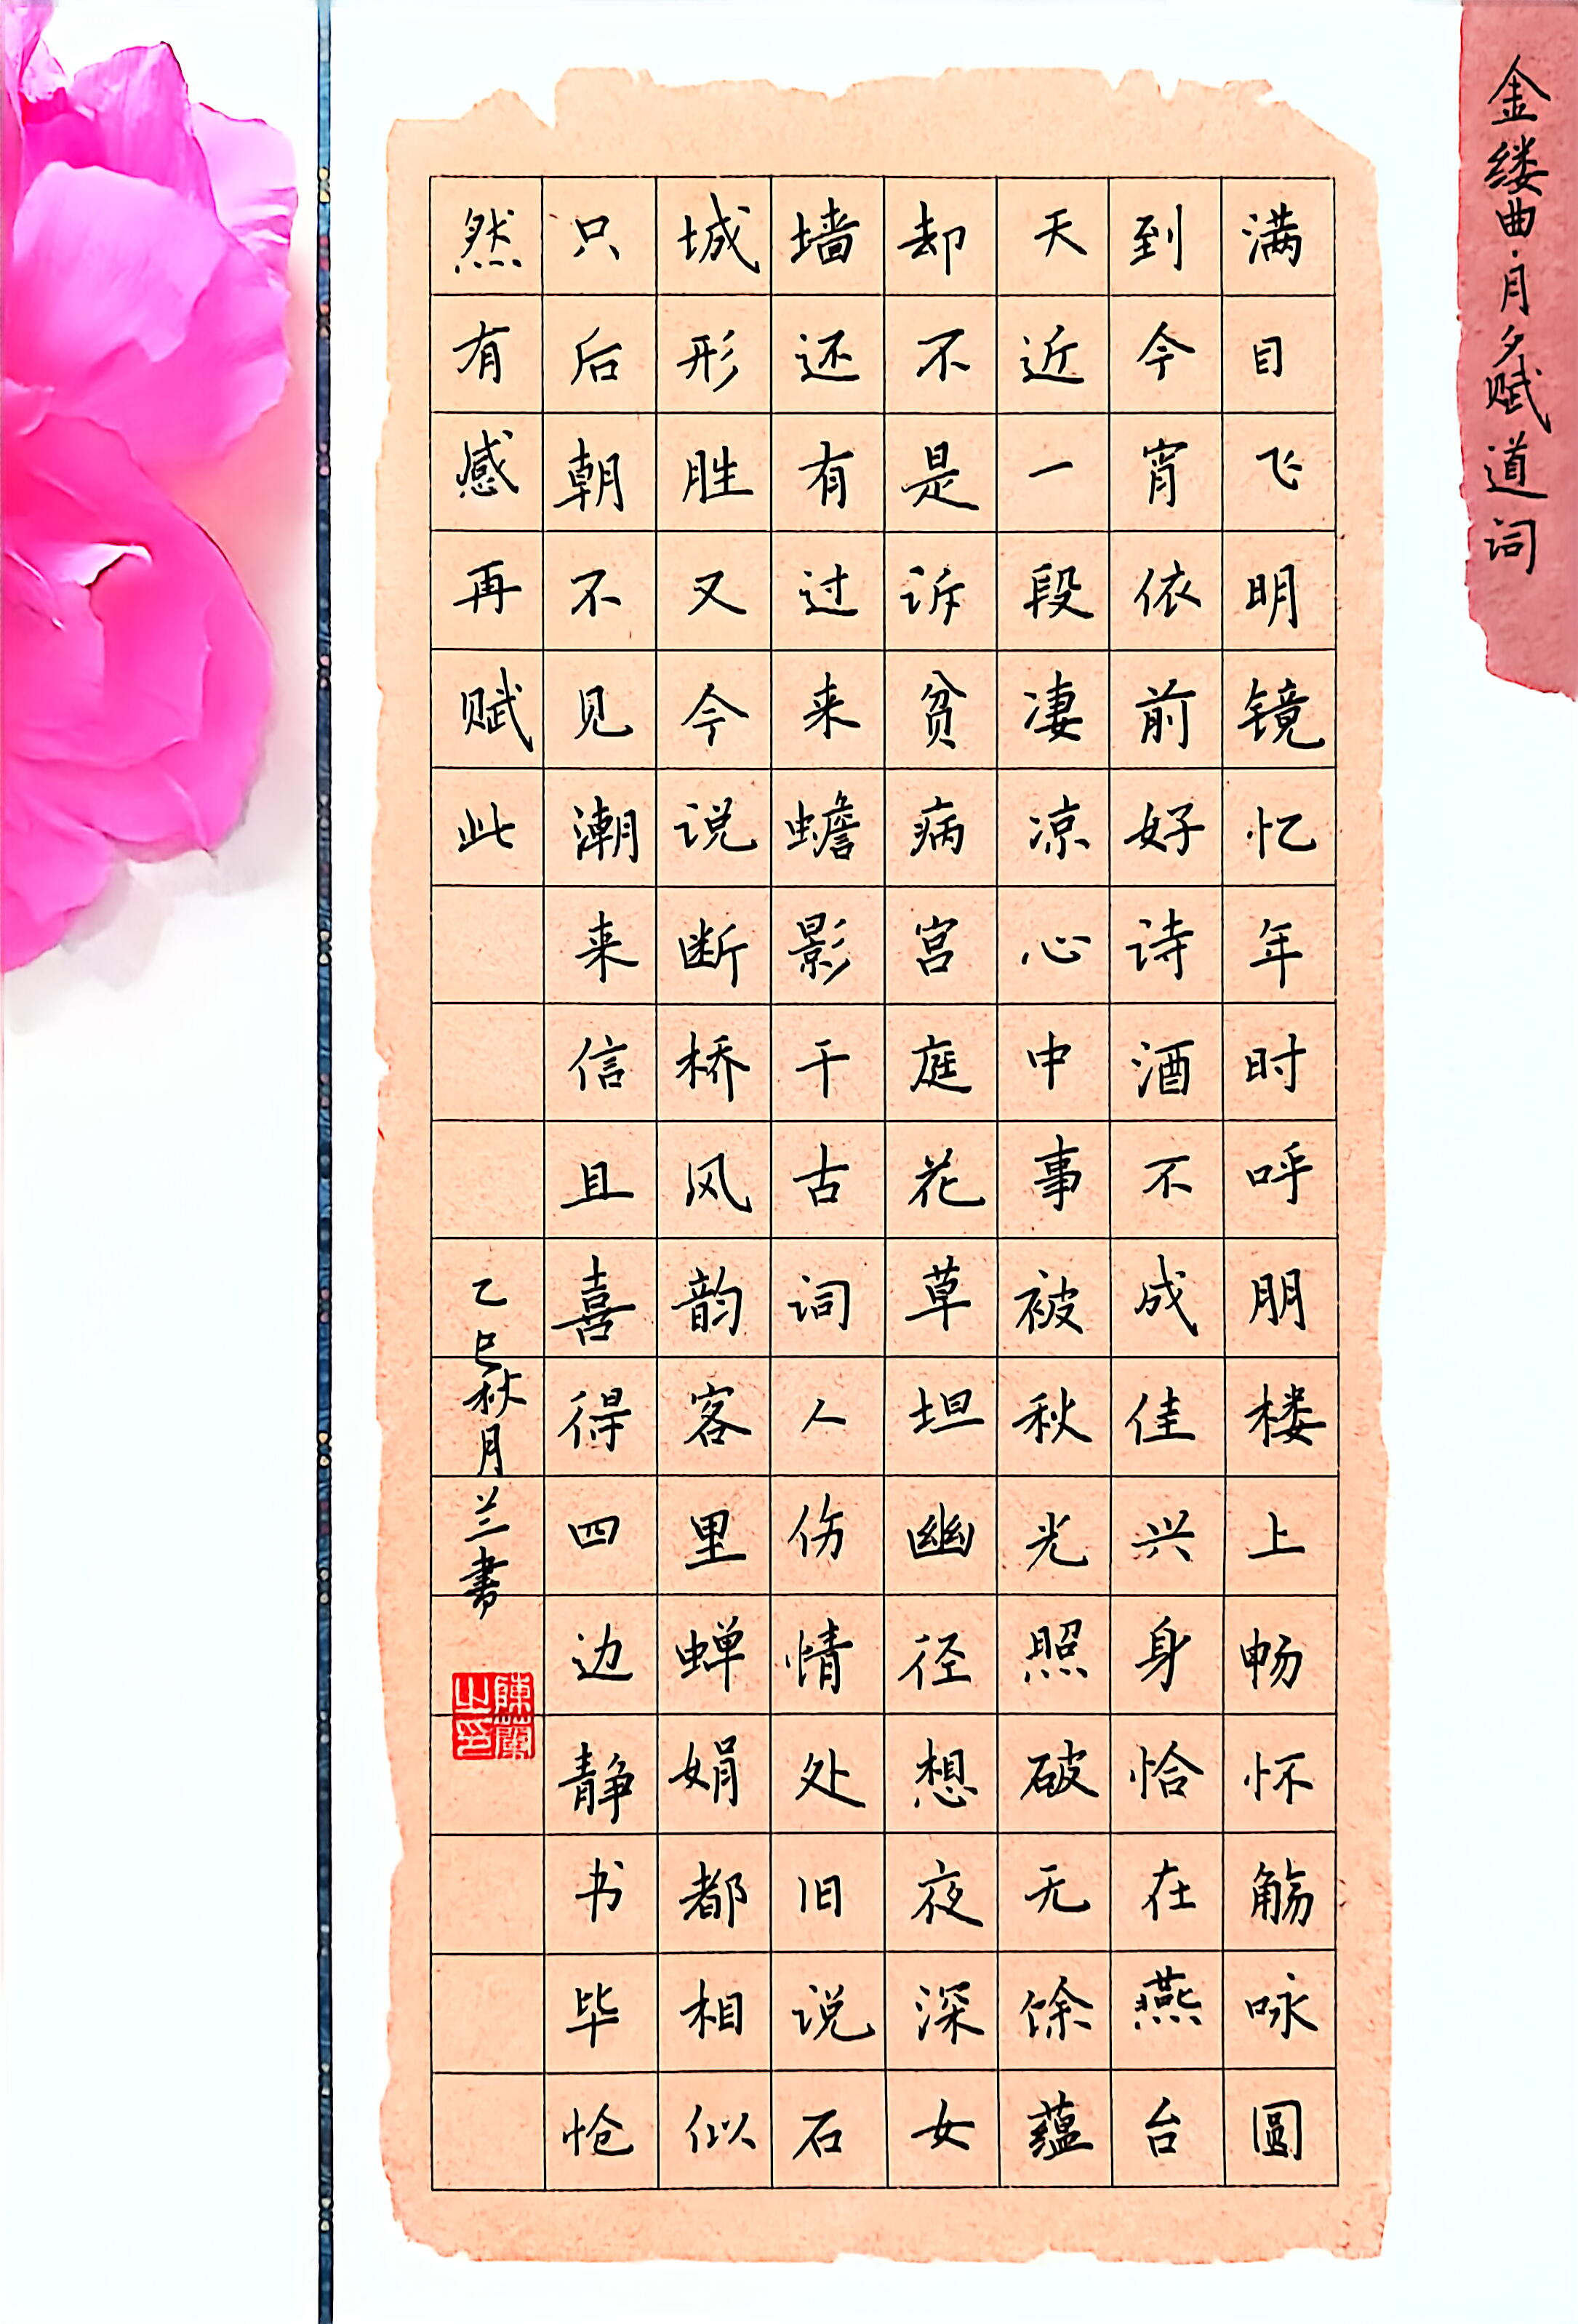 金缕曲·月夕赋道词
满目飞明镜忆年时呼朋楼上畅怀觞咏圆
到今宵依前好诗酒不成佳兴身恰在燕台
天近一段凄凉心中事被秋光照破无馀蕴
却不是诉贫病宫庭花草坦幽径想夜深女
墙还有过来蟾影千古词人伤情处旧说石
城形胜又今说断桥风韵客里蝉娟都相似
只后朝不见潮来信且喜得四边静书毕怆
然有感再赋此
乙巳秋月兰書
陳蘭之印